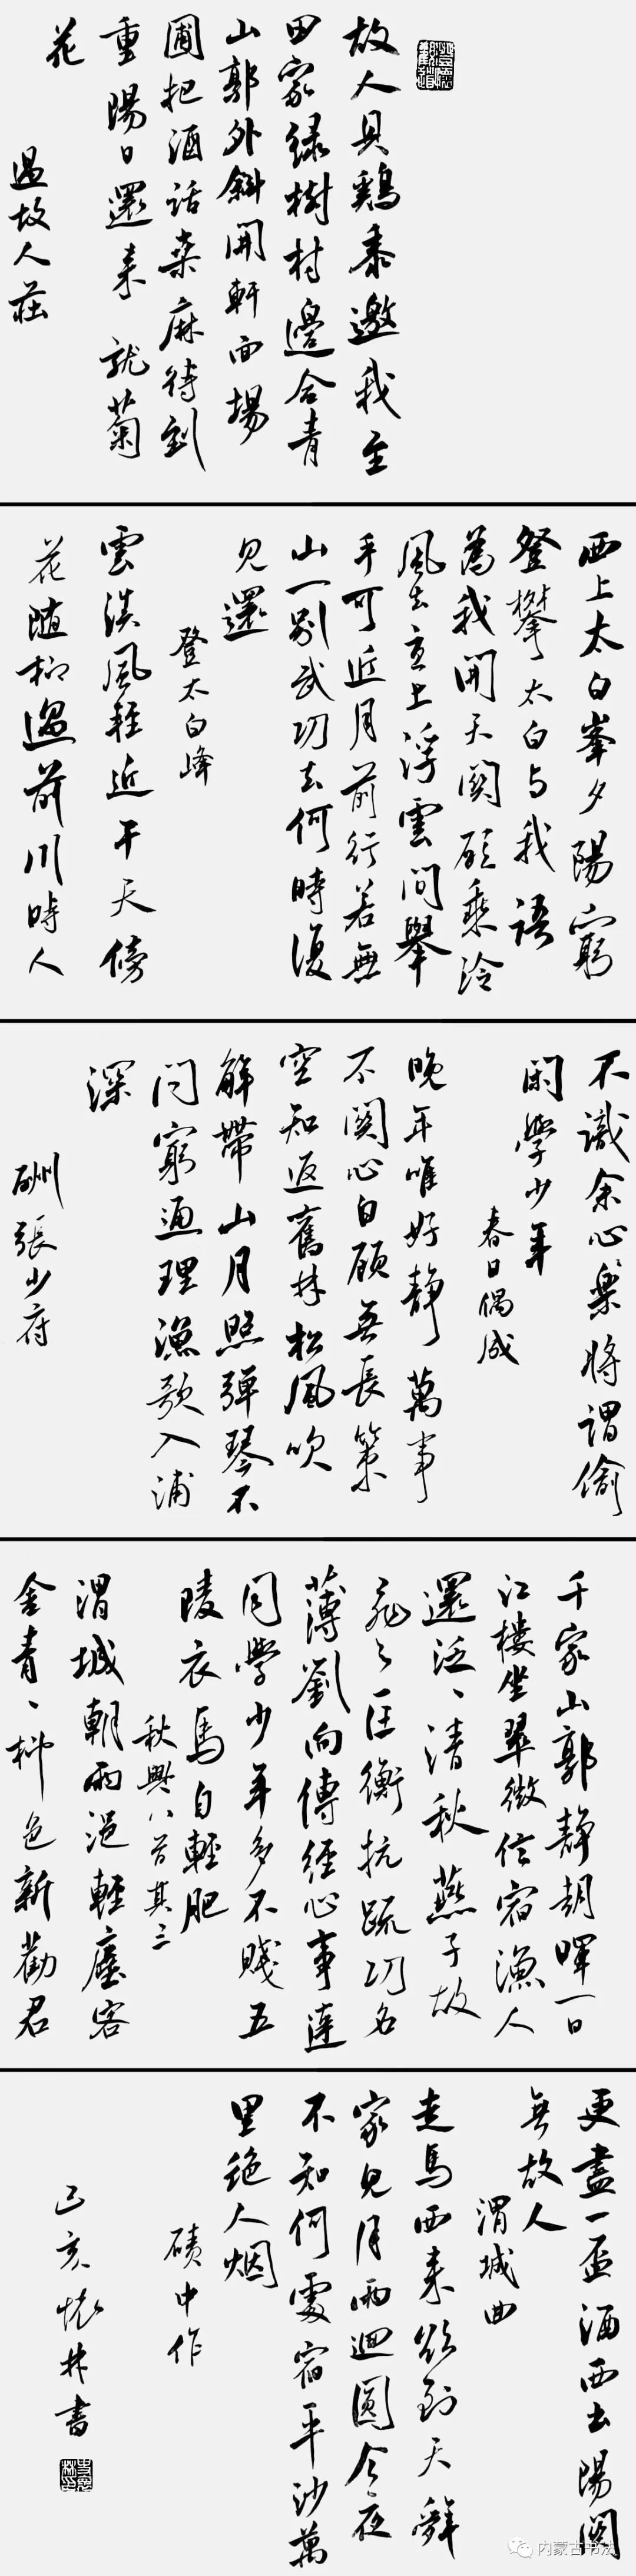 故人具鷄黍邀我至
田家緑樹村邊合青
山郭外斜開軒面場
圃把酒話桑麻待到
重陽日還来就菊
花
過故人莊
西上太白峯夕陽窮
登攀太白与我語
為我開天関願乘泠
風去直上浮雲间舉
手可近月前行若無
山一别武功去何時復
見還
登太白峰
雲淡風輕近午天傍
花随柳過前川時人
不識余心樂將謂偷
閑學少年
春日偶成
晚年唯好静萬事
不関心自顧無長策
空知返舊林松風吹
解帶山月照彈琴不
问窮通理漁歌入浦
深
酬張少府
千家山郭静朝暉一日
江樓坐翠微信宿漁人
還泛々清秋燕子故
飛々匡衡抗疏功名
薄劉向傳經心事違
同學少年多不賤五
陵衣馬自輕肥
秋興八首其三
渭城朝雨浥輕塵客
舍青々柳色新勸君
更盡一盃酒西出陽関
無故人
渭城曲
走馬西来欲到天辭
家見月兩迴圓今夜
不知何處宿平沙萬
里绝人烟
磧中作
己亥懷林書
内蒙古书法